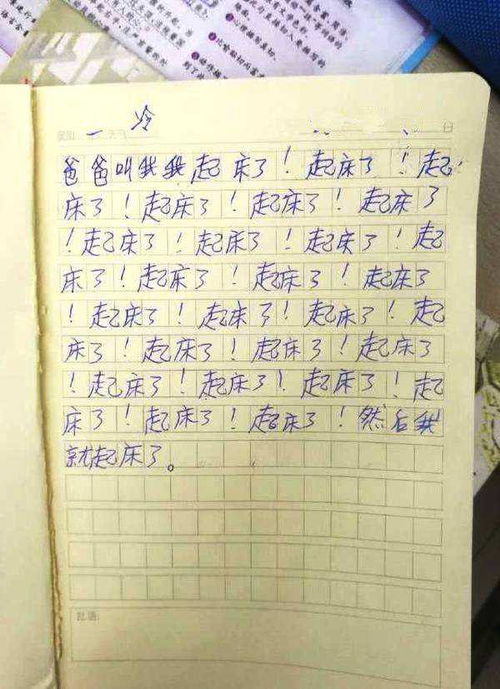 一 冷 日
爸爸叫我我起床了！起床了！起
床了！起床了！起床了！起床了
！起床了！起床了！起床了！起
床了！起床了！起床了！起床了
！起床了！起床了！起床了！起
床了！起床了！起床了！起床了
！起床了！起床了！起床了！起
床了！起床了！起床了！然后我
就起床了。
批语: